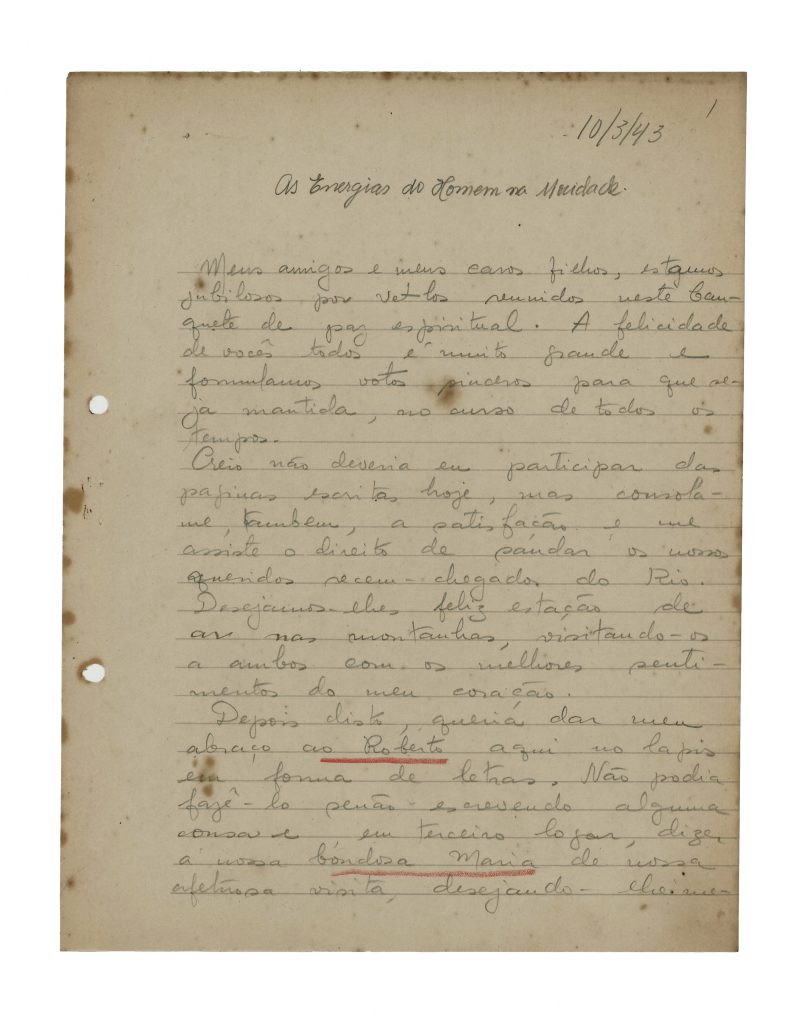 1
10/3/43
As Energias do Homem na Mocidade.
Meus amigos e meus caros filhos, estamos
jubilosos por vel-los reunidos neste ban-
quete de paz espiritual. A felicidade
de vocês todos é muito grande e
formulamos votos sinceros para que se-
ja mantida, no curso de todos os
tempos.
Creio não deveria eu participar das
paginas escritas hoje, mas consola-
me, tambem, a satisfação e me
assiste o direito de saudar os nossos
queridos recem-chegados do Rio.
Desejamos-lhes feliz estação de
ar nas montanhas, visitando-os
a ambos com os melhores senti-
mentos do meu coração.
Depois disto, queria dar meu
abraço ao Roberto aqui no lapis
em forma de letras. Não podia
fazê-lo senão escrevendo alguma
cousa e em terceiro logar, dizer
á nossa bondosa Maria de nossa
afetuosa visita, desejando-lhe me-